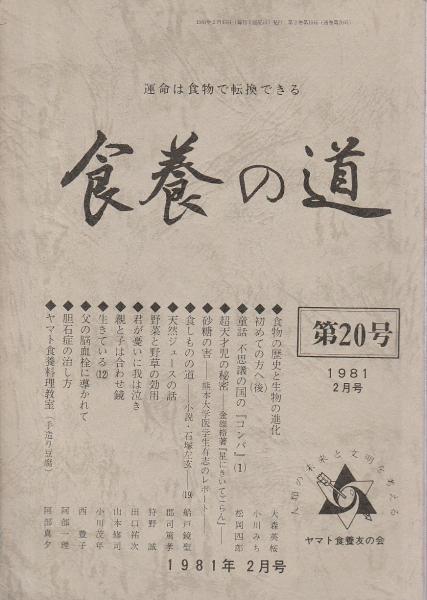 運命は食物で転換できる
食養の道
第20号
1981
2月号
◆食物の歴史と生物の進化 大森英桜
◆初めての方へ(後) 小川みち
◆童話 不思議の国の『コンパ』(1) 松岡四郎
◆超天才児の秘密──金雄鎔著『星にきいてごらん』──
◆砂糖の害──熊本大学医学生有志のレポート──
◆食しものの道──小説・石塚左玄──(19) 船戸鏡聖
◆天然ジュースの話 郡司篤孝
◆野菜と野草の効用 狩野誠
◆君が憂いに我は泣き 田口祐次
◆親と子は合わせ鏡 山本修司
◆生きている(12) 小川茂年
◆父の脳血栓に導かれて 西豊子
◆胆石症の治し方 阿部一理
◆ヤマト食養料理教室(手造り豆腐) 阿部真夕
人類の未来と文明を考える
ヤマト食養友の会
1981年 2月号